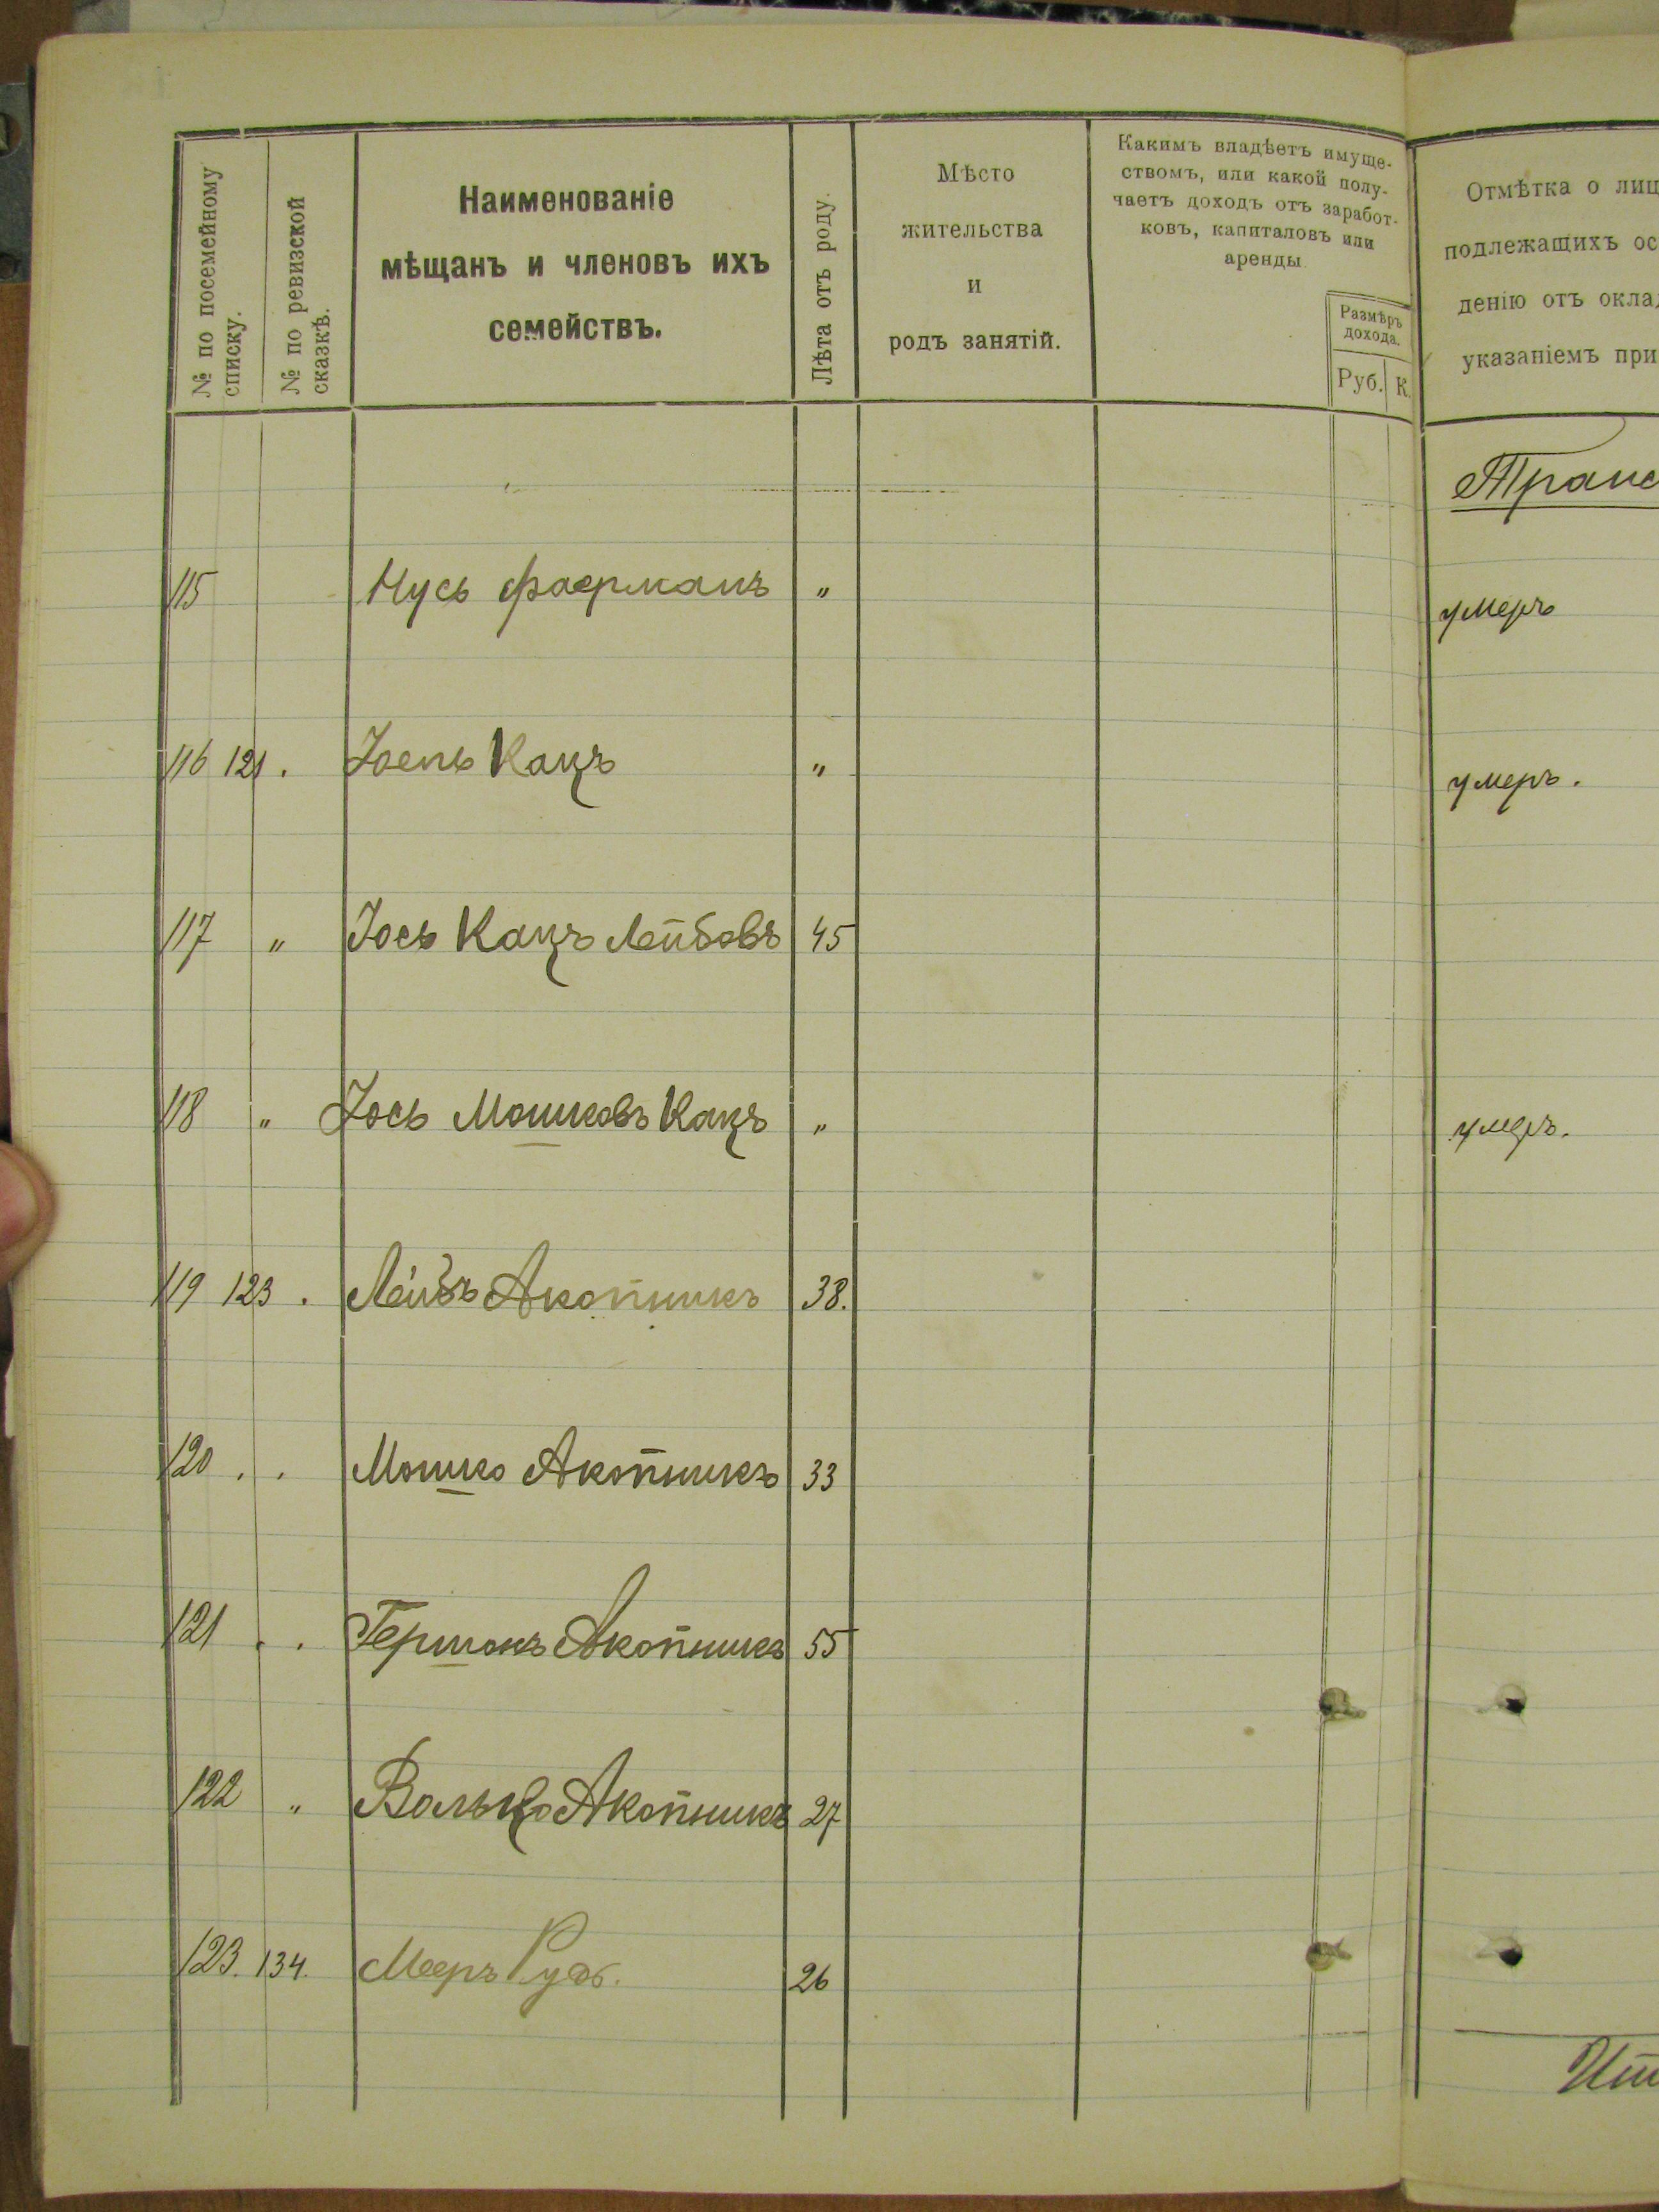 № по посемейному
списку.
№ по ревизской
сказкѣ.
Наименованіе
мѣщанъ и членовъ ихъ
семействъ.
Лѣта отъ роду.
Мѣсто
жительства
и
родъ занятій.
Какимъ владѣетъ имуще-
ствомъ, или какой полу-
чаетъ доходъ отъ заработ-
ковъ, капиталовъ или
аренды
Размѣръ
дохода.
Руб. К.
Отмѣтка о лиц
подлежащихъ ос
денію отъ окла
указаніемъ при
Транс
115 Нусь Фаерманъ " умеръ
116 121. Іось Кацъ " умеръ.
117 " Іось Кацъ Лейбовъ 45
118 " Іось Мошковъ Кацъ " умеръ.
119 123. Лейбъ Акопникъ 38.
120 . . Мошко Акопникъ 33
121 . . Гершонъ Акопникъ 55
122 " Волько Акопникъ 27
123. 134. Мееръ 26
Ит